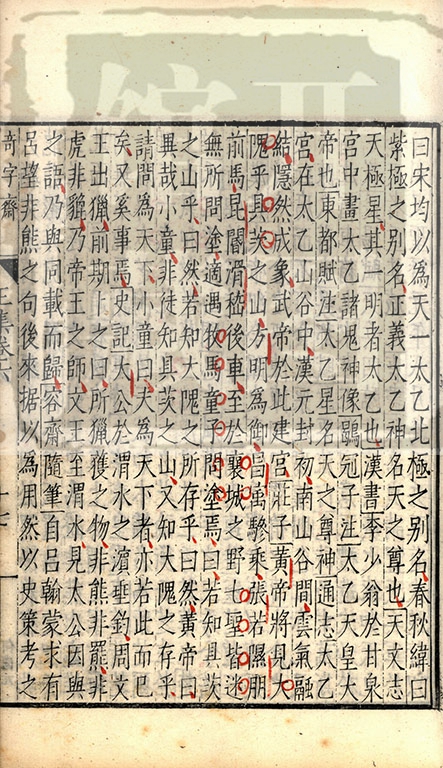 曰宋均以為天一太乙北極之别名春秋緯曰
紫極之别名正義太乙神名天之尊也天文志
天極星其一明者太乙也漢書李少翁於甘泉
宮中畫太乙諸鬼神像鶡冠子注太乙天皇大
帝也東都賦注太乙星名天之尊神通志太乙
宮在太乙山谷中漢元封初南山谷間雲氣融
結隱然成象武帝於此建宮莊子黃帝將見大
隗乎具茨之山方明為御昌㝢驂乘張若謵朋
前馬昆閽滑稽後車至於襄城之野七聖皆迷
無所問塗適遇牧馬童子問塗焉曰若知具茨
之山乎曰然若知大隗之所存乎曰然黃帝曰
異哉小童非徒知具茨之山又知大隗之存乎
請問為天下小童曰夫為天下者亦若此而已
矣又奚事焉史記太公於渭水之濱垂釣周文
王出獵前期卜之曰所獵獲之物非熊非羆非
虎非貔乃帝王之師文王至渭水見太公因與
之語乃與同載而歸容齋隨筆自呂翰蒙求有
呂望非熊之句後來据以為用然以史策考之
奇字齋 卷六